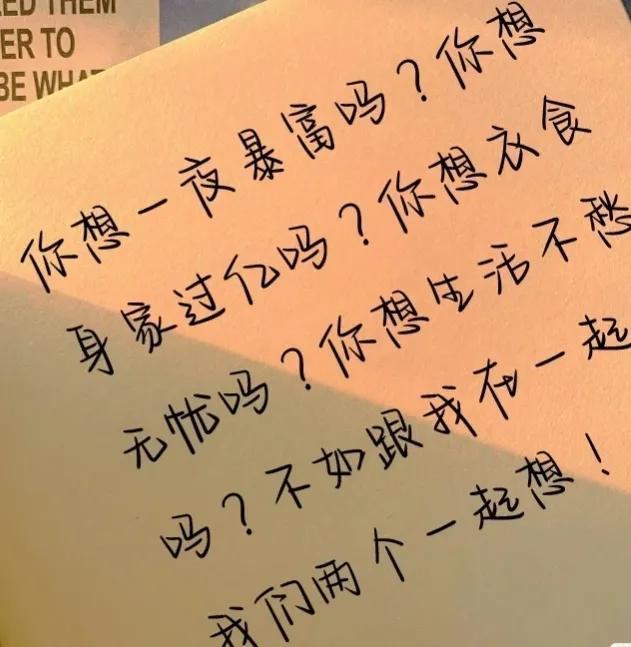 ED THEM
ER TO
BE WHAT
你想一夜暴富吗？你想
身家过亿吗？你想衣食
无忧吗？你想生活不愁
吗？不如跟我在一起
我们两个一起想！